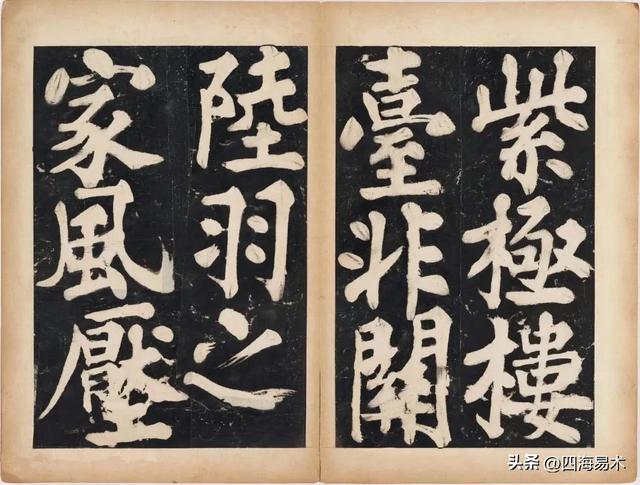 紫極樓
臺非關
陸羽之
家風壓
头条 @四海易木